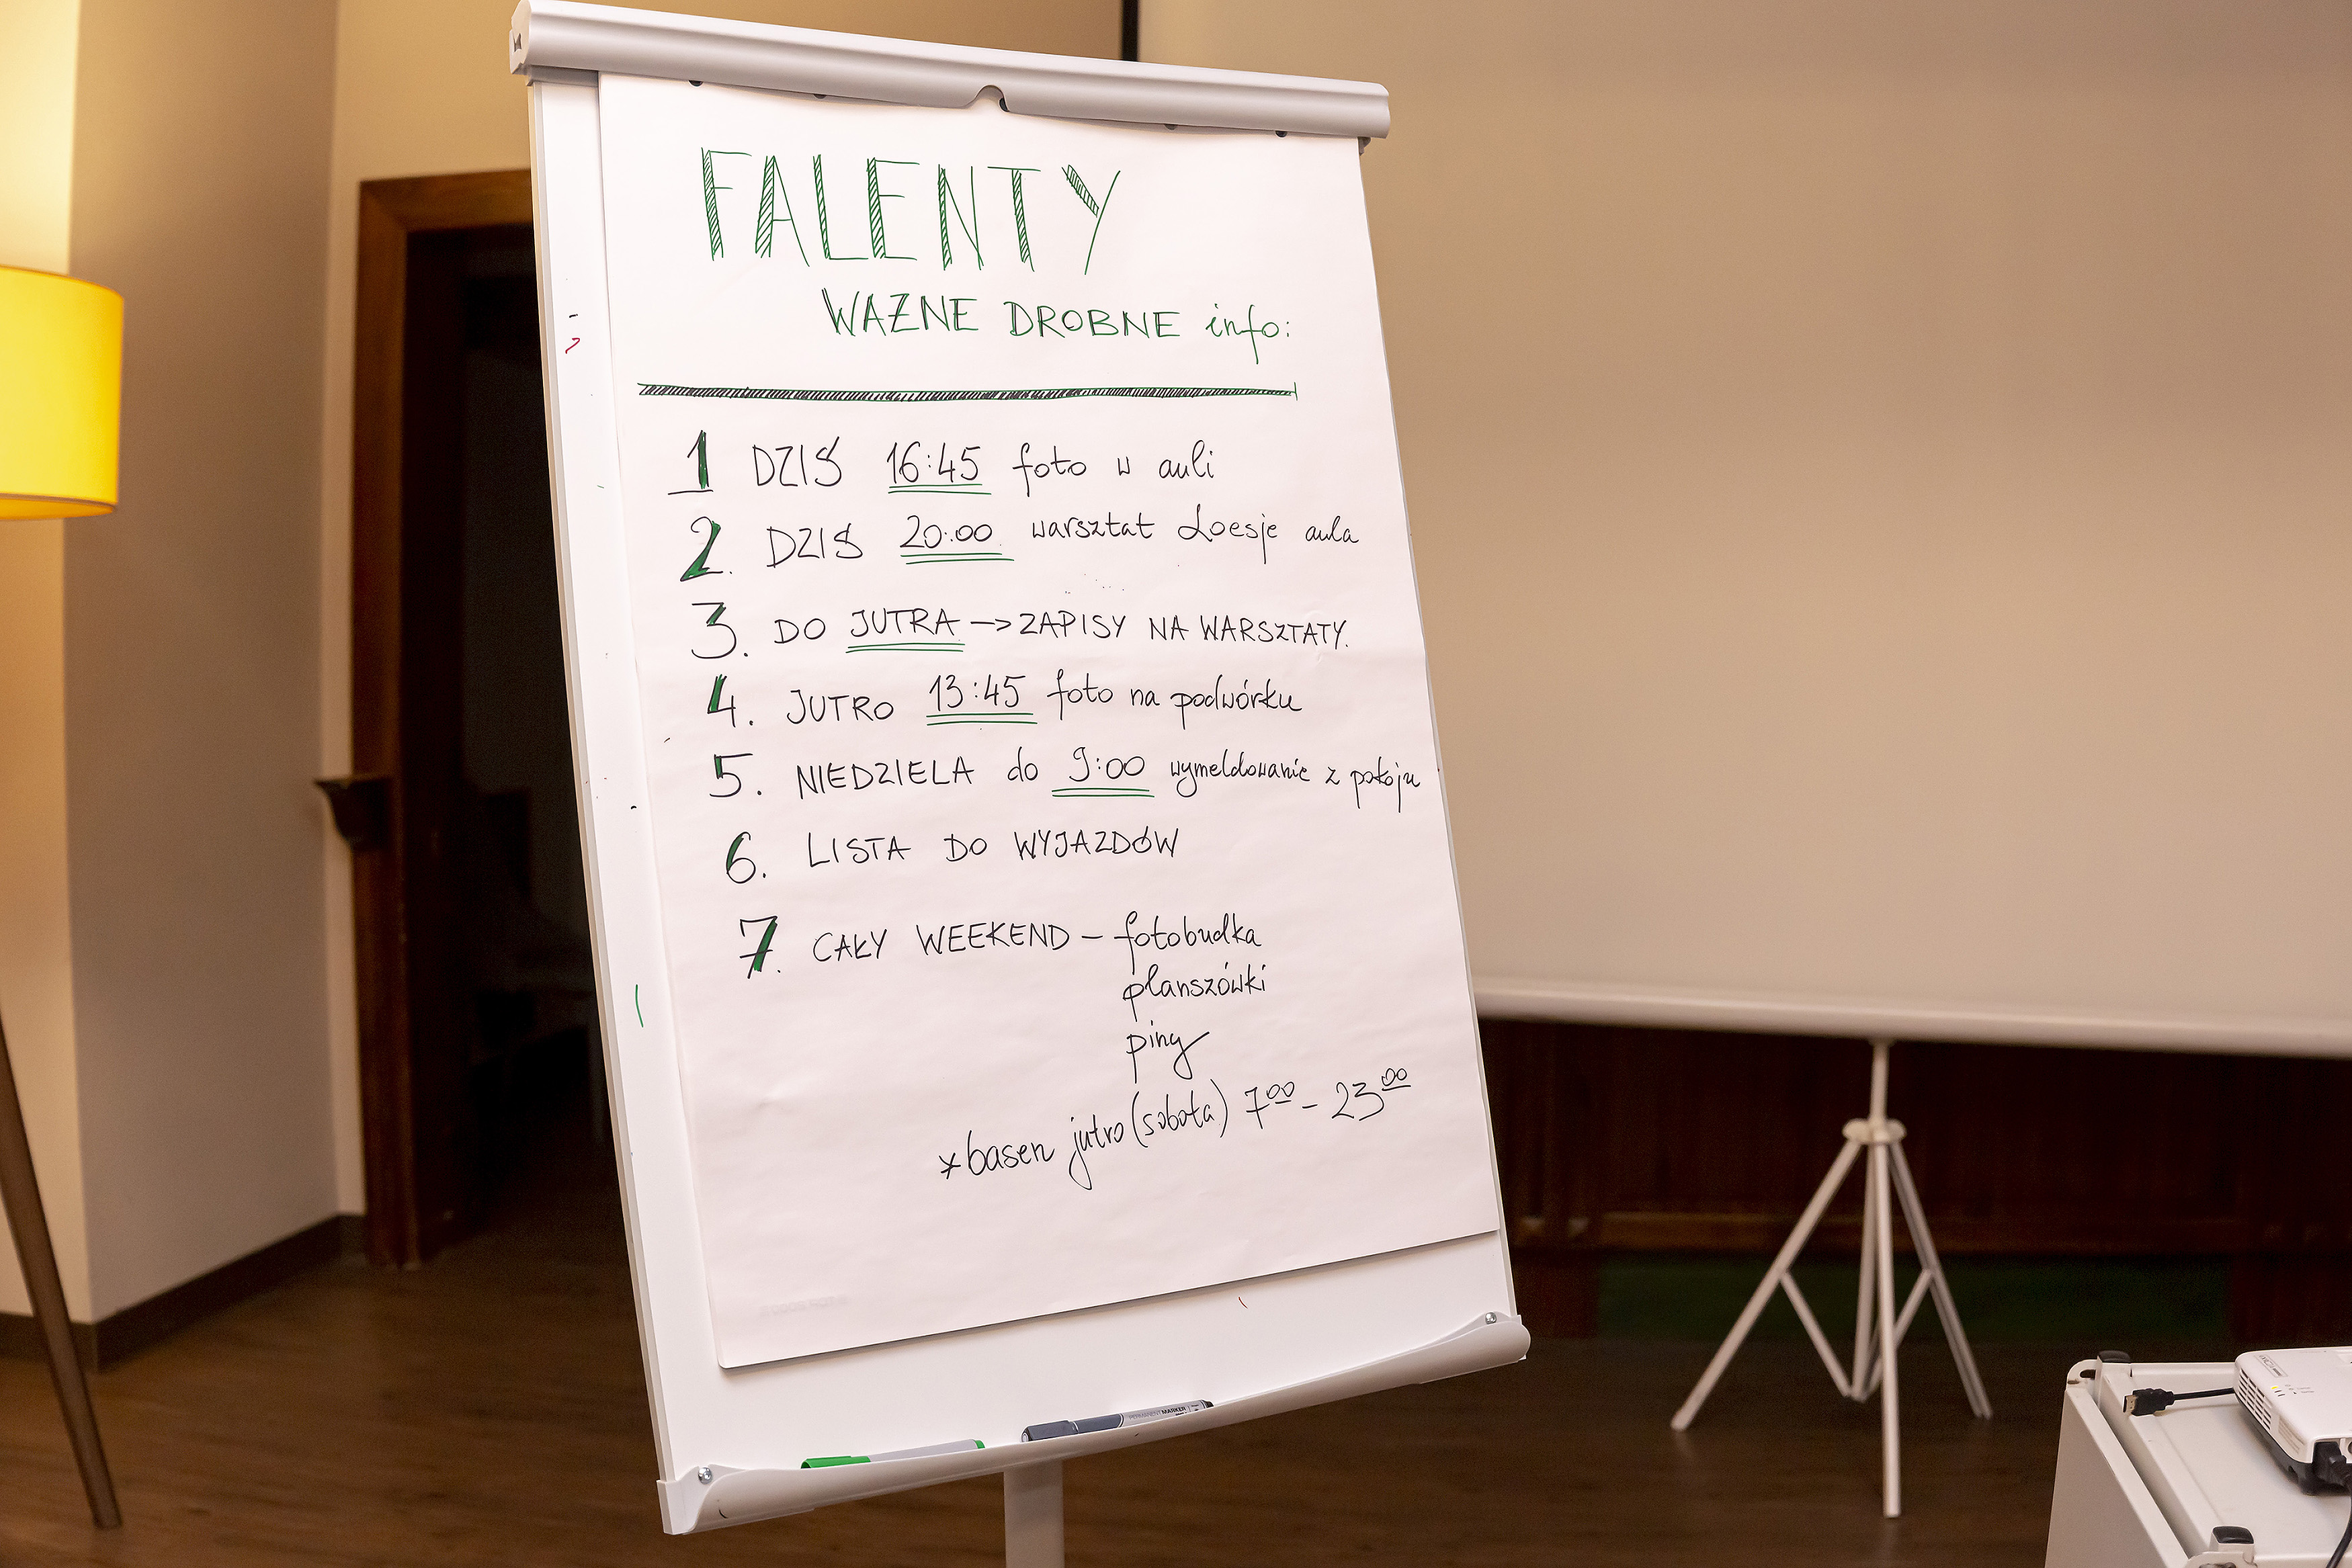 FALENTY
WAŻNE DROBNE info:
1 DZIŚ 16:45 foto w auli
2. DZIŚ 20:00 warsztat Loesje aula
3. DO JUTRA -> ZAPISY NA WARSZTATY.
4. JUTRO 13:45 foto na podwórku
5. NIEDZIELA do 9:00 wymeldowanie z pokoju
6. LISTA DO WYJAZDÓW
7. CAŁY WEEKEND – fotobudka
planszówki
ping
*basen jutro (sobota) 7⁰⁰ – 23⁰⁰
PERMANENT MARKER